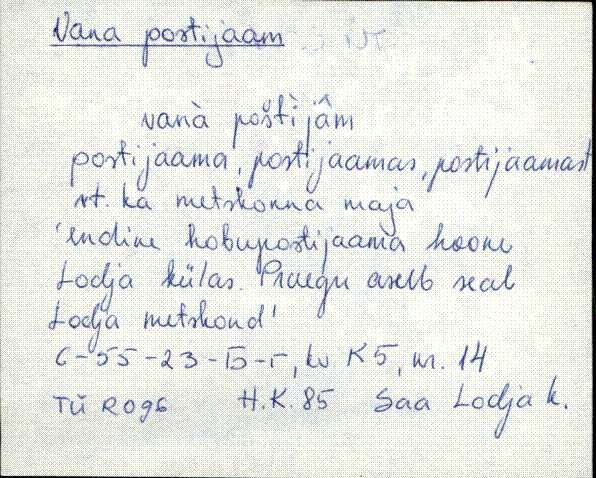 Vana postijaam
vanà poštìjâm
postijaama, postijaamas, postijaamast
vt. ka metskonna maja
'endine hobupostijaama hoone
Lodja külas. Praegu asub seal
Lodja metskond'
C-55-23-Б-Г, kv K5, nr. 14
TÜ ROGS H.K. 85 Saa Lodja k.